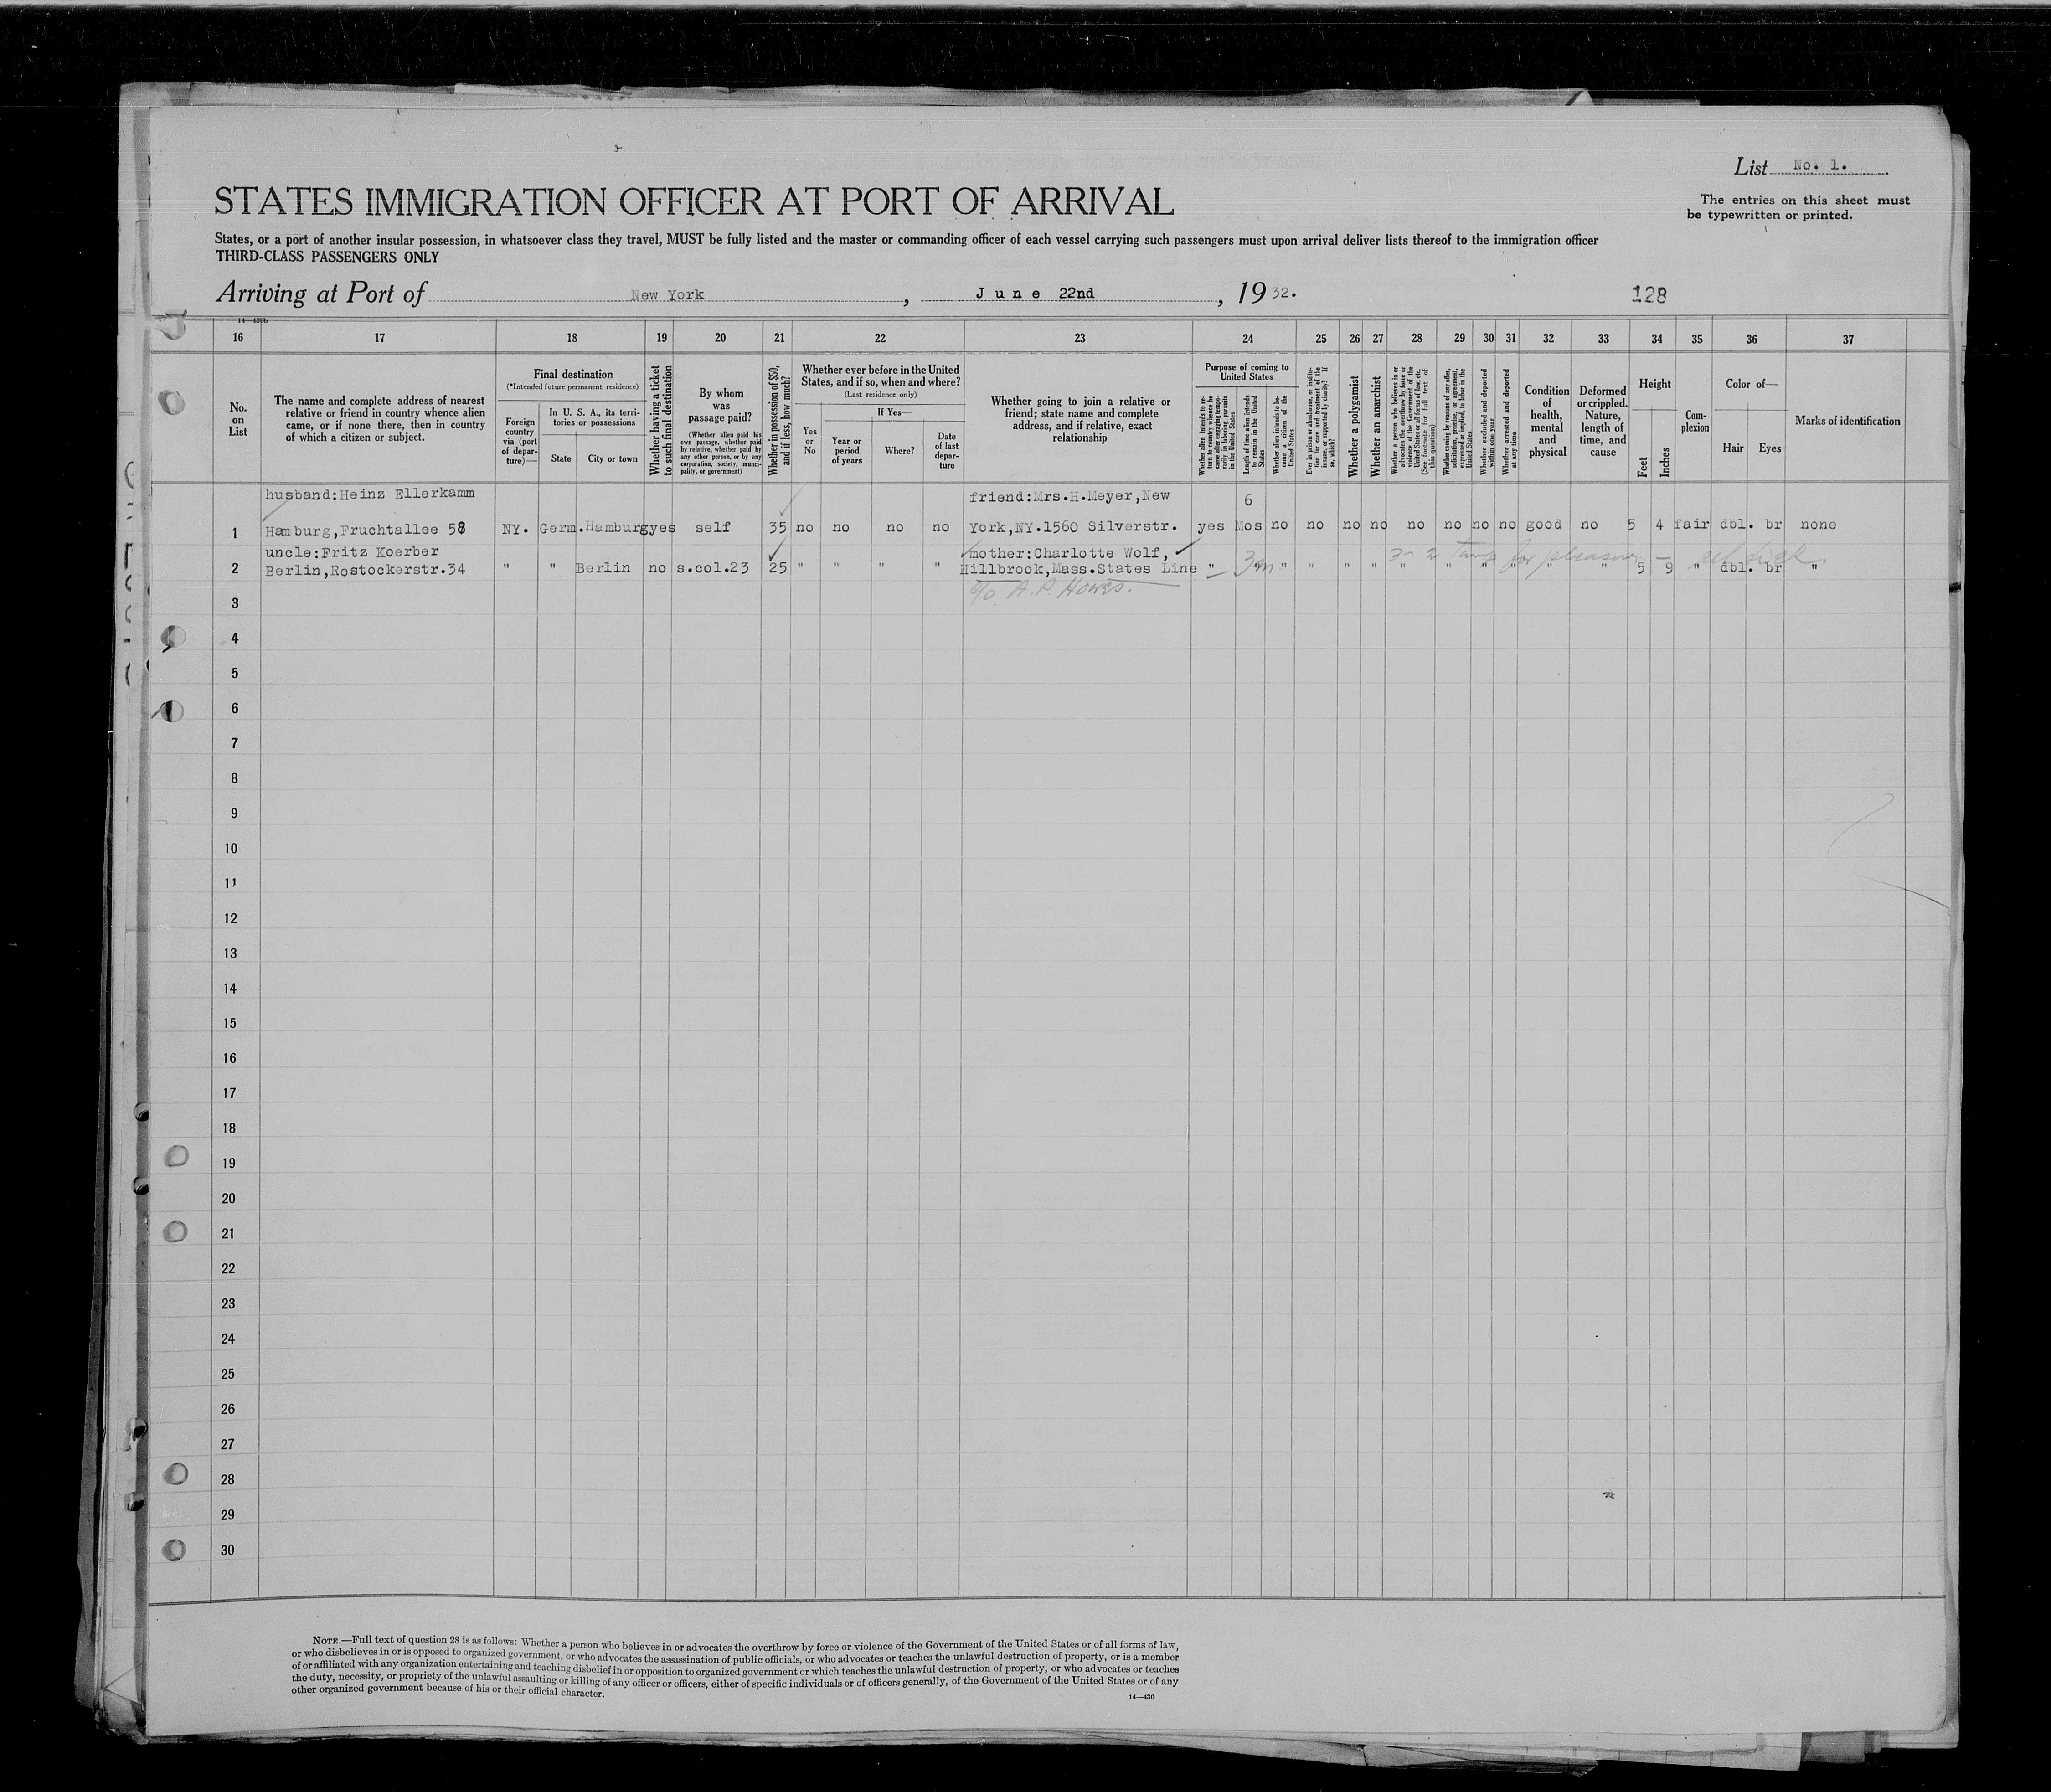 List No. 1.
STATES IMMIGRATION OFFICER AT PORT OF ARRIVAL
The entries on this sheet must
be typewritten or printed.
States, or a port of another insular possession, in whatsoever class they travel, MUST be fully listed and the master or commanding officer of each vessel carrying such passengers must upon arrival deliver lists thereof to the immigration officer
THIRD-CLASS PASSENGERS ONLY
Arriving at Port of New York, June 22nd, 1932.
128
16 17 18 19 20 21 22 23 24 25 26 27 28 29 30 31 32 33 34 35 36 37
No.
on
List
The name and complete address of nearest
relative or friend in country whence alien
came, or if none there, then in country
of which a citizen or subject.
Final destination
(*Intended future permanent residence)
Foreign
country
via (port
of depar-
ture)—
In U. S. A., its terri-
tories or possessions
State
City or town
Whether having a ticket
to such final destination
By whom
was
passage paid?
(Whether alien paid his
own passage, whether paid
by relative, whether paid by
any other person, or by any
corporation, society, munici-
pality, or government)
Whether in possession of $50,
and if less, how much?
Whether ever before in the United
States, and if so, when and where?
(Last residence only)
Yes
or
No
If Yes—
Year or
period
of years
Where?
Date
of last
depar-
ture
Whether going to join a relative or
friend; state name and complete
address, and if relative, exact
relationship
Purpose of coming to
United States
Whether alien intends to re-
turn to country whence he
came after engaging tempo-
rarily in laboring pursuits
in the United States
Length of time alien intends
to remain in the United
States
Whether alien intends to be-
come a citizen of the
United States
Ever in prison or almshouse, or institu-
tion for care and treatment of the
insane, or supported by charity? If
so, which?
Whether a polygamist
Whether an anarchist
Whether a person who believes in or
advocates the overthrow by force or
violence of the Government of the
United States or all forms of law, etc.
(See footnote for full text of
this question)
Whether coming by reason of any offer,
solicitation, promise, or agreement,
expressed or implied, to labor in the
United States
Whether excluded and deported
within one year
Whether arrested and deported
at any time
Condition
of
health,
mental
and
physical
Deformed
or crippled.
Nature,
length of
time, and
cause
Height
Feet
Inches
Com-
plexion
Color of—
Hair
Eyes
Marks of identification
husband:Heinz Ellerkamm friend:Mrs.H.Meyer,New 6
1 Hamburg,Fruchtallee 58 NY. Germ.Hamburg yes self 35 no no no no York,NY.1560 Silverstr. yes Mos no no no no no no no no good no 5 4 fair dbl. br none
uncle:Fritz Koerber mother:Charlotte Wolf,
2 Berlin,Rostockerstr.34 " " Berlin no s.col.23 25 " " " " Hillbrook,Mass.States Line " 3m " " " " " " " " " " 5 9 " dbl. br "
for pleasure
c/o A.P. Howes.
3
4
5
6
7
8
9
10
11
12
13
14
15
16
17
18
19
20
21
22
23
24
25
26
27
28
29
30
NOTE.—Full text of question 28 is as follows: Whether a person who believes in or advocates the overthrow by force or violence of the Government of the United States or of all forms of law,
or who disbelieves in or is opposed to organized government, or who advocates the assassination of public officials, or who advocates or teaches the unlawful destruction of property, or is a member
of or affiliated with any organization entertaining and teaching disbelief in or opposition to organized government or which teaches the unlawful destruction of property, or who advocates or teaches
the duty, necessity, or propriety of the unlawful assaulting or killing of any officer or officers, either of specific individuals or of officers generally, of the Government of the United States or of any
other organized government because of his or their official character.
14—430